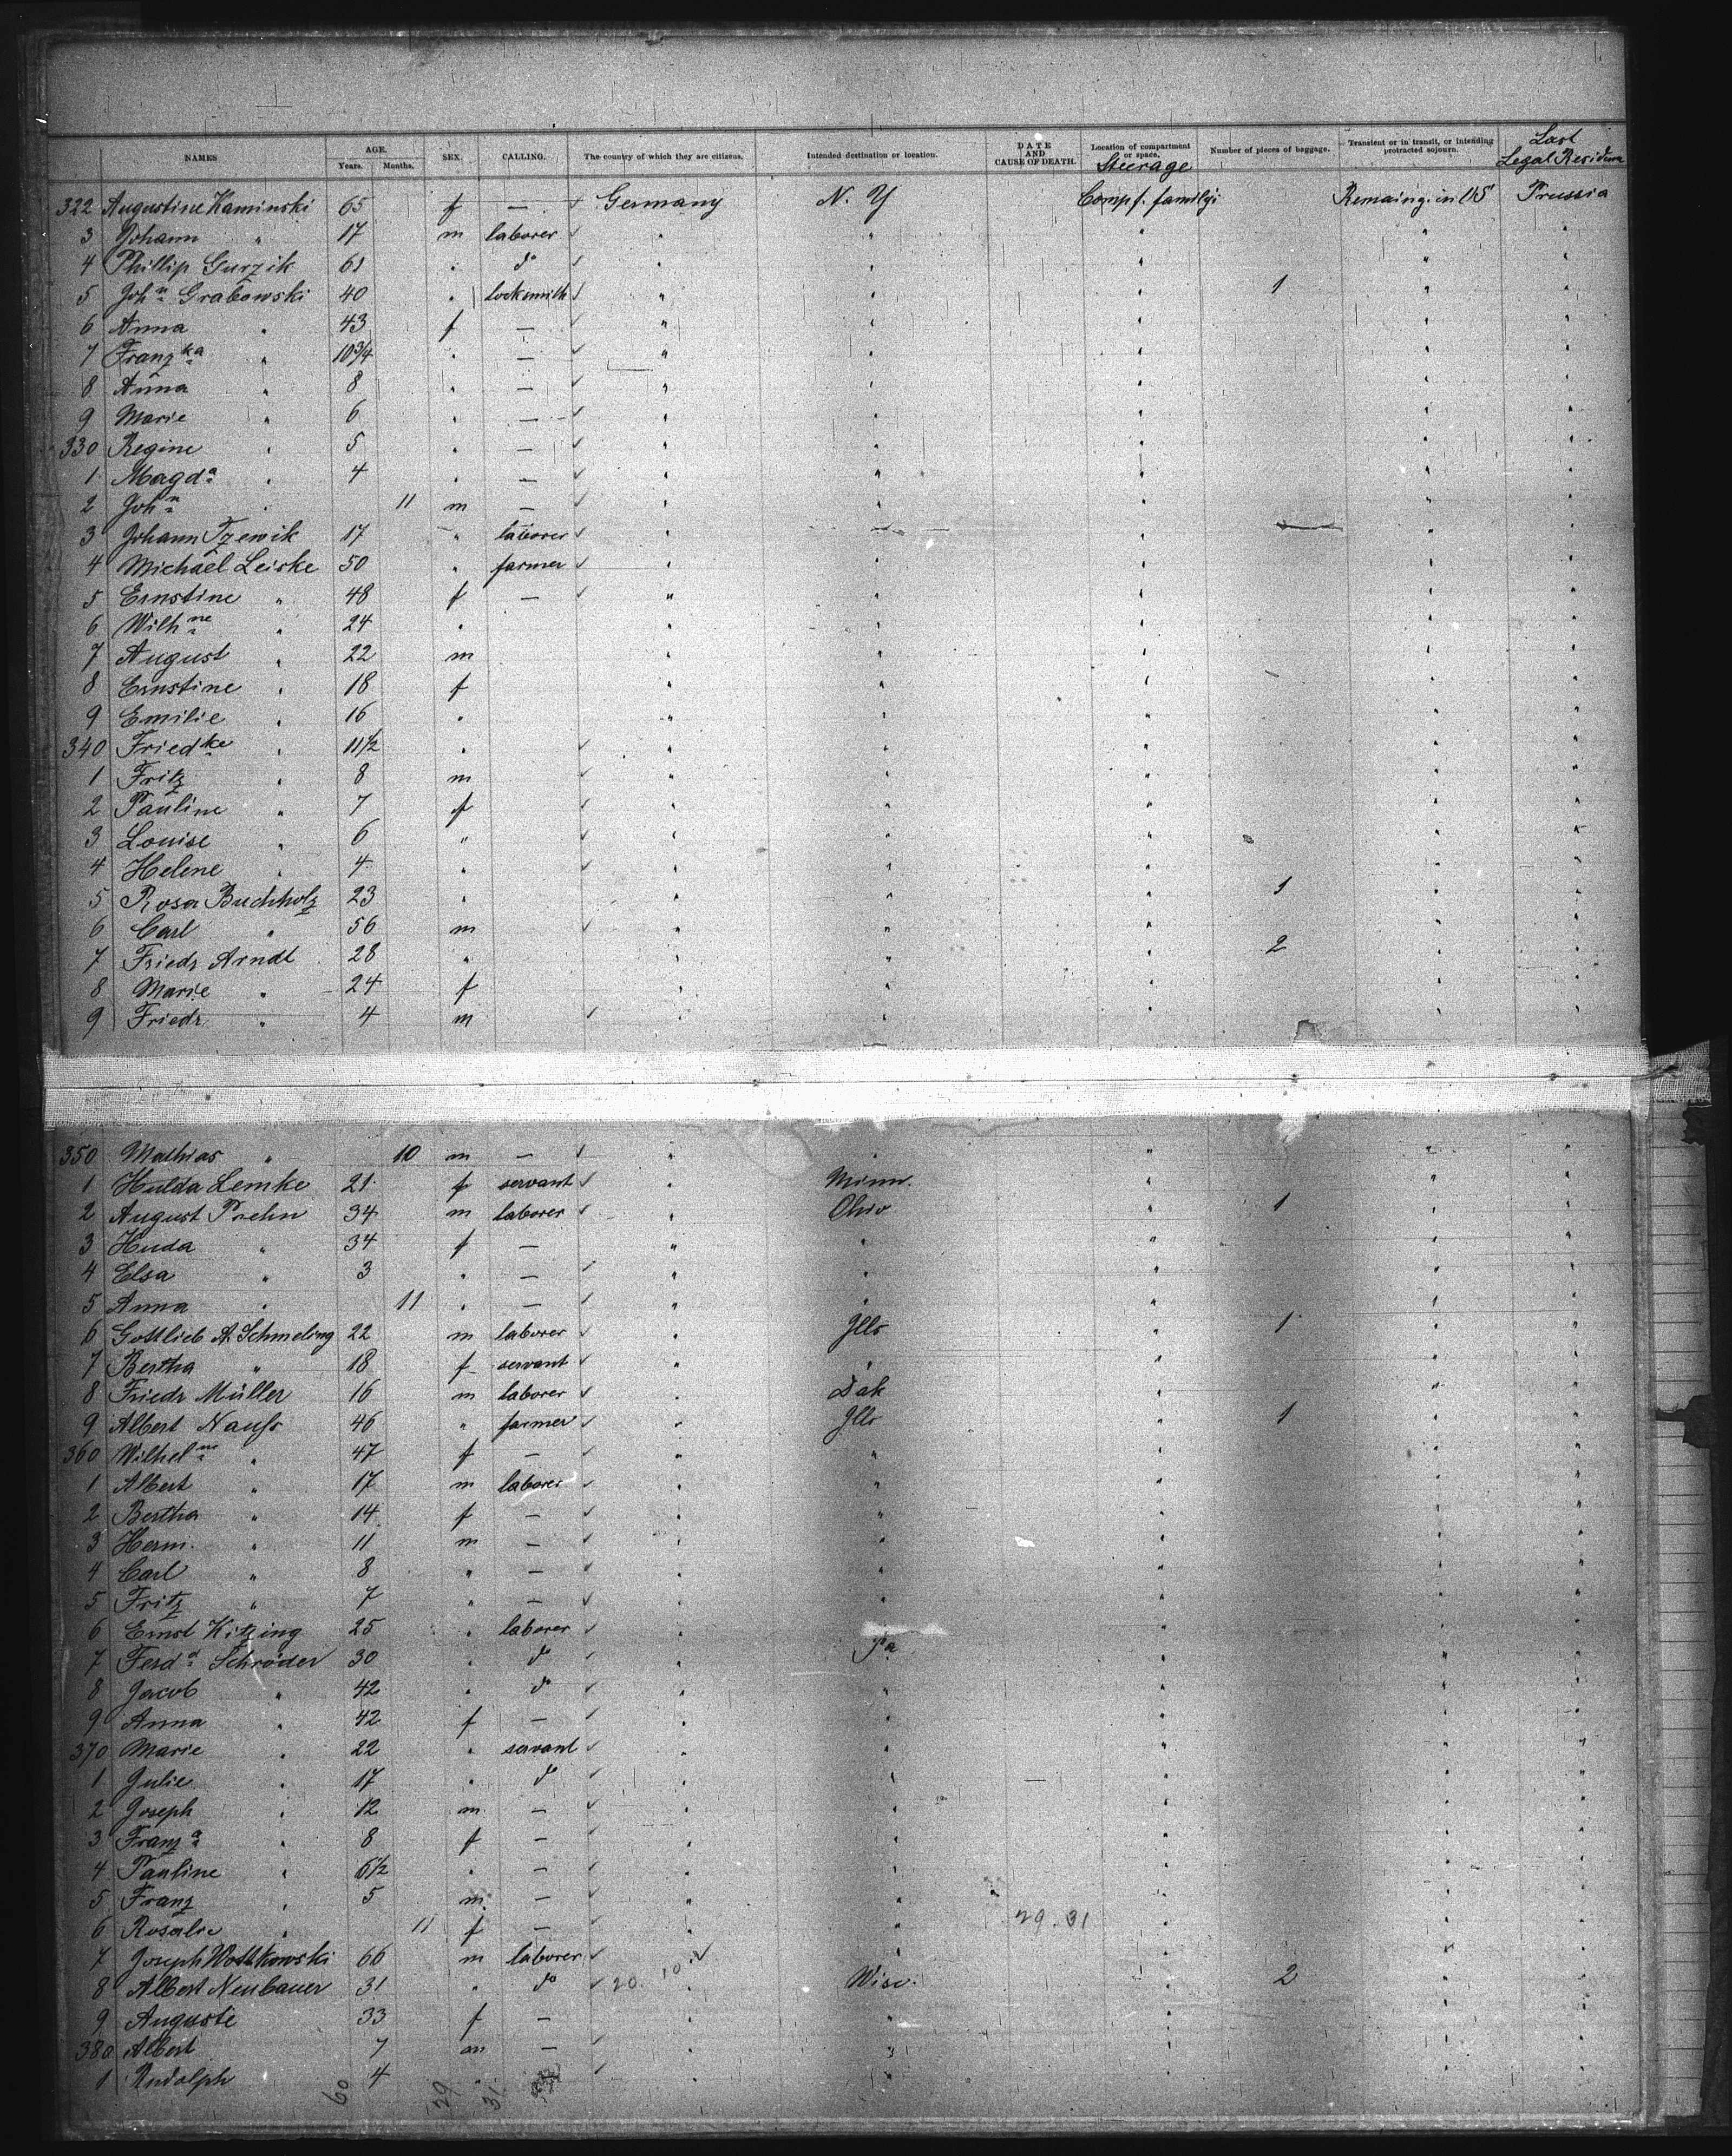 NAMES AGE. Years. Months. SEX. CALLING. The country of which they are citizens. Intended destination or location. DATE AND CAUSE OF DEATH. Location of compartment or space. Steerage Number of pieces of baggage. Transient or in transit, or intending protracted sojourn. Last Legal Residence
322 Augustine Kaminski 65 f — Germany N. Y Comp f. family's Remaing. in US Prussia
3 Johann " 17 m laborer " " " " "
4 Phillip Gurzik 61 " do " " " " "
5 John Grabowski 40 " locksmith " " " 1 " "
6 Anna " 43 f — " " " " "
7 Franzka " 10 3/4 " — " " " " "
8 Anna " 8 " — " " " " "
9 Marie " 6 " — " " " " "
330 Regine " 5 " — " " " " "
1 Magda " 4 " — " " " " "
2 John " 11 m — " " " " "
3 Johann Tzewik 17 " laborer " " " — " "
4 Michael Leiske 50 " farmer " " " " "
5 Ernstine " 48 f — " " " " "
6 Wilhne " 24 " " " " " "
7 August " 22 m " " " " "
8 Ernstine " 18 f " " " " "
9 Emilie " 16 " " " " " "
340 Friedke " 11 1/2 " " " " " "
1 Fritz " 8 m " " " " "
2 Pauline " 7 f " " " " "
3 Louise " 6 " " " " " "
4 Helene " 4 " " " " " "
5 Rosa Buchholz 23 " " " " 1 " "
6 Carl " 56 m " " " " "
7 Friedr Arndt 28 " " " " 2 " "
8 Marie " 24 f " " " " "
9 Friedr " 4 m " " " " "
350 Mathias " 10 m — " " " " "
1 Hulda Lemke 21 f servant " Minn. " " "
2 August Prehn 34 m laborer " Ohio " 1 " "
3 Huda " 34 f — " " " " "
4 Elsa " 3 " — " " " " "
5 Anna " 11 " — " " " " "
6 Gottlieb A. Schmeling 22 m laborer " Ills " 1 " "
7 Bertha " 18 f servant " " " " "
8 Friedr Müller 16 m laborer " Dak " " "
9 Albert Nauss 46 " farmer " Ills " 1 " "
360 Wilhelne " 47 f — " " " " "
1 Albert " 17 m laborer " " " " "
2 Bertha " 14 f — " " " " "
3 Herm. " 11 m — " " " " "
4 Carl " 8 " — " " " " "
5 Fritz " 7 " — " " " " "
6 Ernst Kitzing 25 " laborer " " " "
7 Ferdd Schröder 30 " do " Pa " " "
8 Jacob " 42 " do " " " " "
9 Anna " 42 f — " " " " "
370 Marie " 22 " servant " " " " "
1 Julie " 17 " do " " " " "
2 Joseph " 12 m — " " " " "
3 Franza " 8 f — " " " " "
4 Pauline " 6 1/2 " — " " " " "
5 Franz " 5 m — " " " " "
6 Rosalie " 11 f — " " 29. 31 " " "
7 Joseph Wottkowski 66 m laborer " " " " "
8 Albert Neubauer 31 " do 20. 10 " Wisc. " 2 " "
9 Auguste 33 f — " " " " "
380 Albert 7 m — " " " " "
1 Rudolph 4 " " " " " "
60 29 31